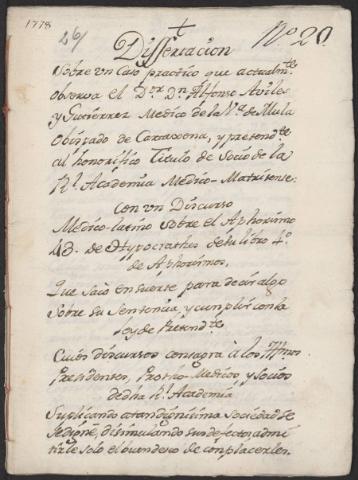 1778
26/
Nº 20.
Dissertacion
Sobre un Caso practico que actualmte.
Observa el Dor. Dn. Alfonso Aviles
y Gutierrez Medico de la Va. de Mula
Obispado de Cartaxena, y pretendte.
al honorifico Titulo de Socio de la
Rl. Academia Medico-Matritense:
Con un Discurso
Medico-latino sobre el Aphorismo
43. de Hypocrathes de su libro 4º.
de Aphorismos,
Que saco en suerte para decir algo
Sobre su Sentencia, y cumplir con la
ley de Pretendte.
Cuios discursos consagra à los
Presidentes, Proto-Medico y Socios
de dha Rl. Academia
Suplicando a tan dignissima Sociedad se
se digne, disimulando sus defectos, admi
tirle solo el buen deseo de complacerles.